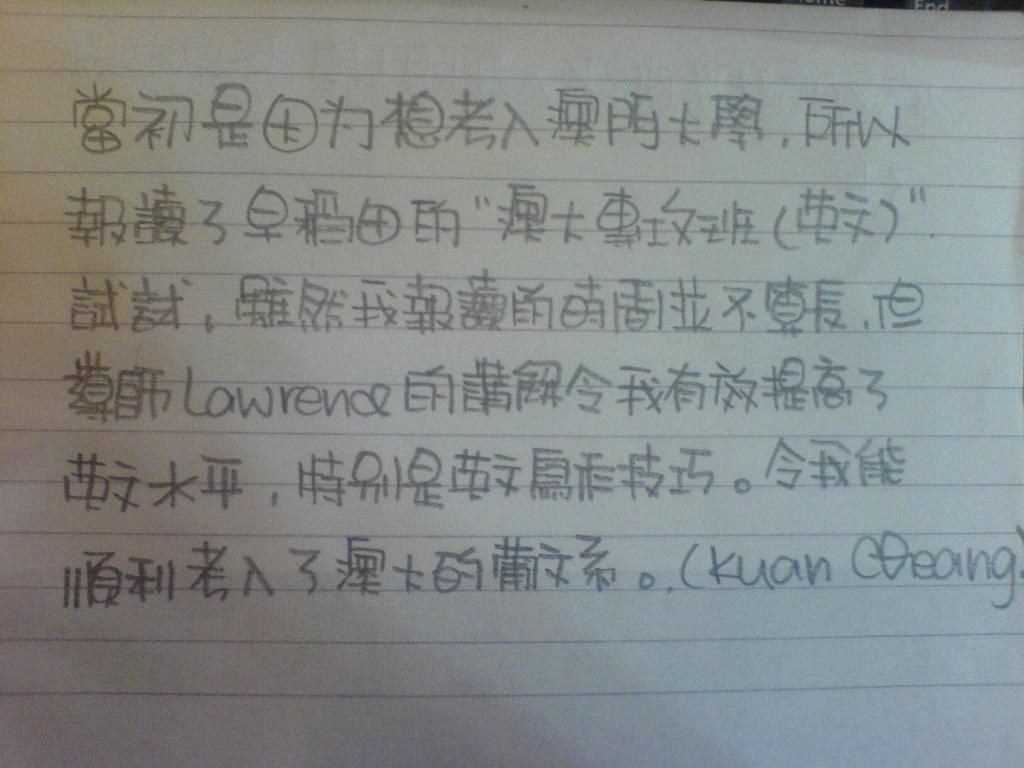 當初是因为想考入澳門大學，所以
報讀了早稻田的"澳大專攻班(英文)".
試試，雖然我報讀的時間並不算長，但
導師Lawrence的講解令我有效提高了
英文水平，特別是英文寫作技巧。令我能
順利考入了澳大的葡文系。(Kuan Cheang)